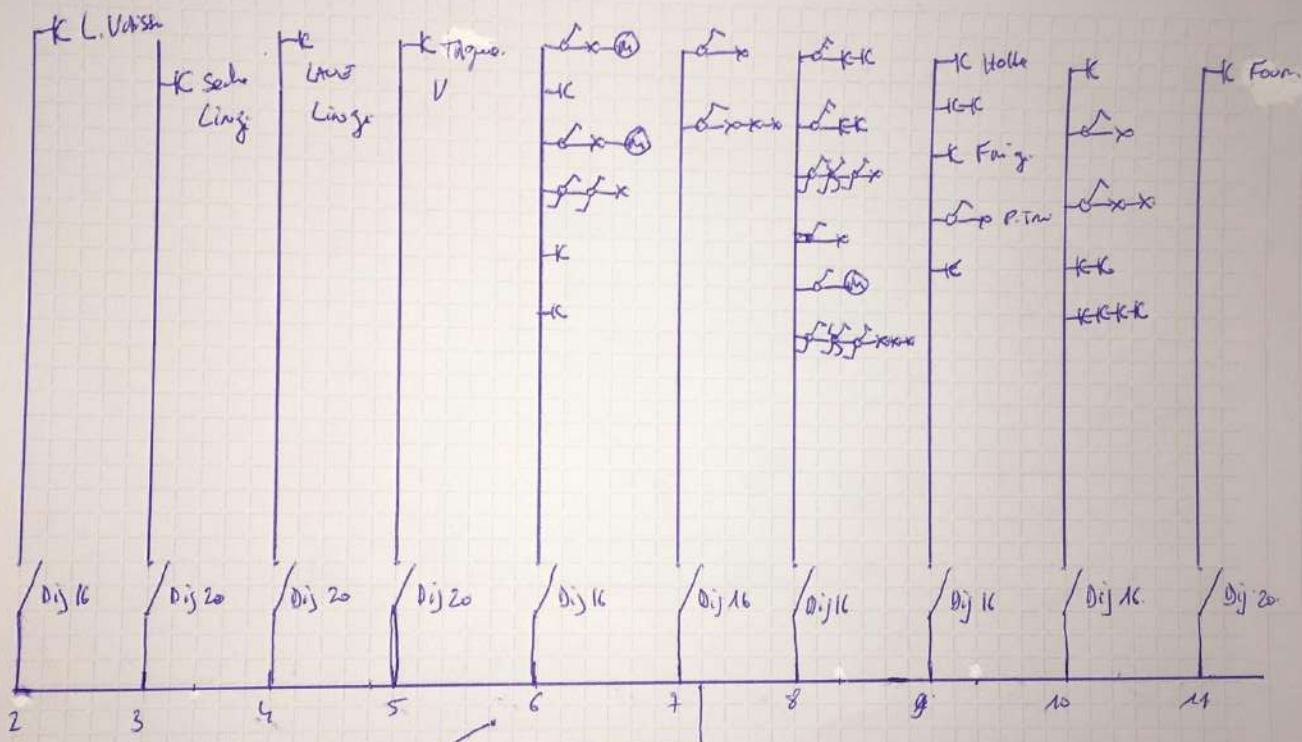 L. Vaiss
Seche
Linge
LAVE
Linge
Taque
V
M
M
M
Hotte
Frig.
P. Trav
Four.
Dij 16
Dij 20
Dij 20
Dij 20
Dij 16
Dij 16
Dij 16
Dij 16
Dij 16.
Dij 20.
2
3
4
5
6
7
8
9
10
11